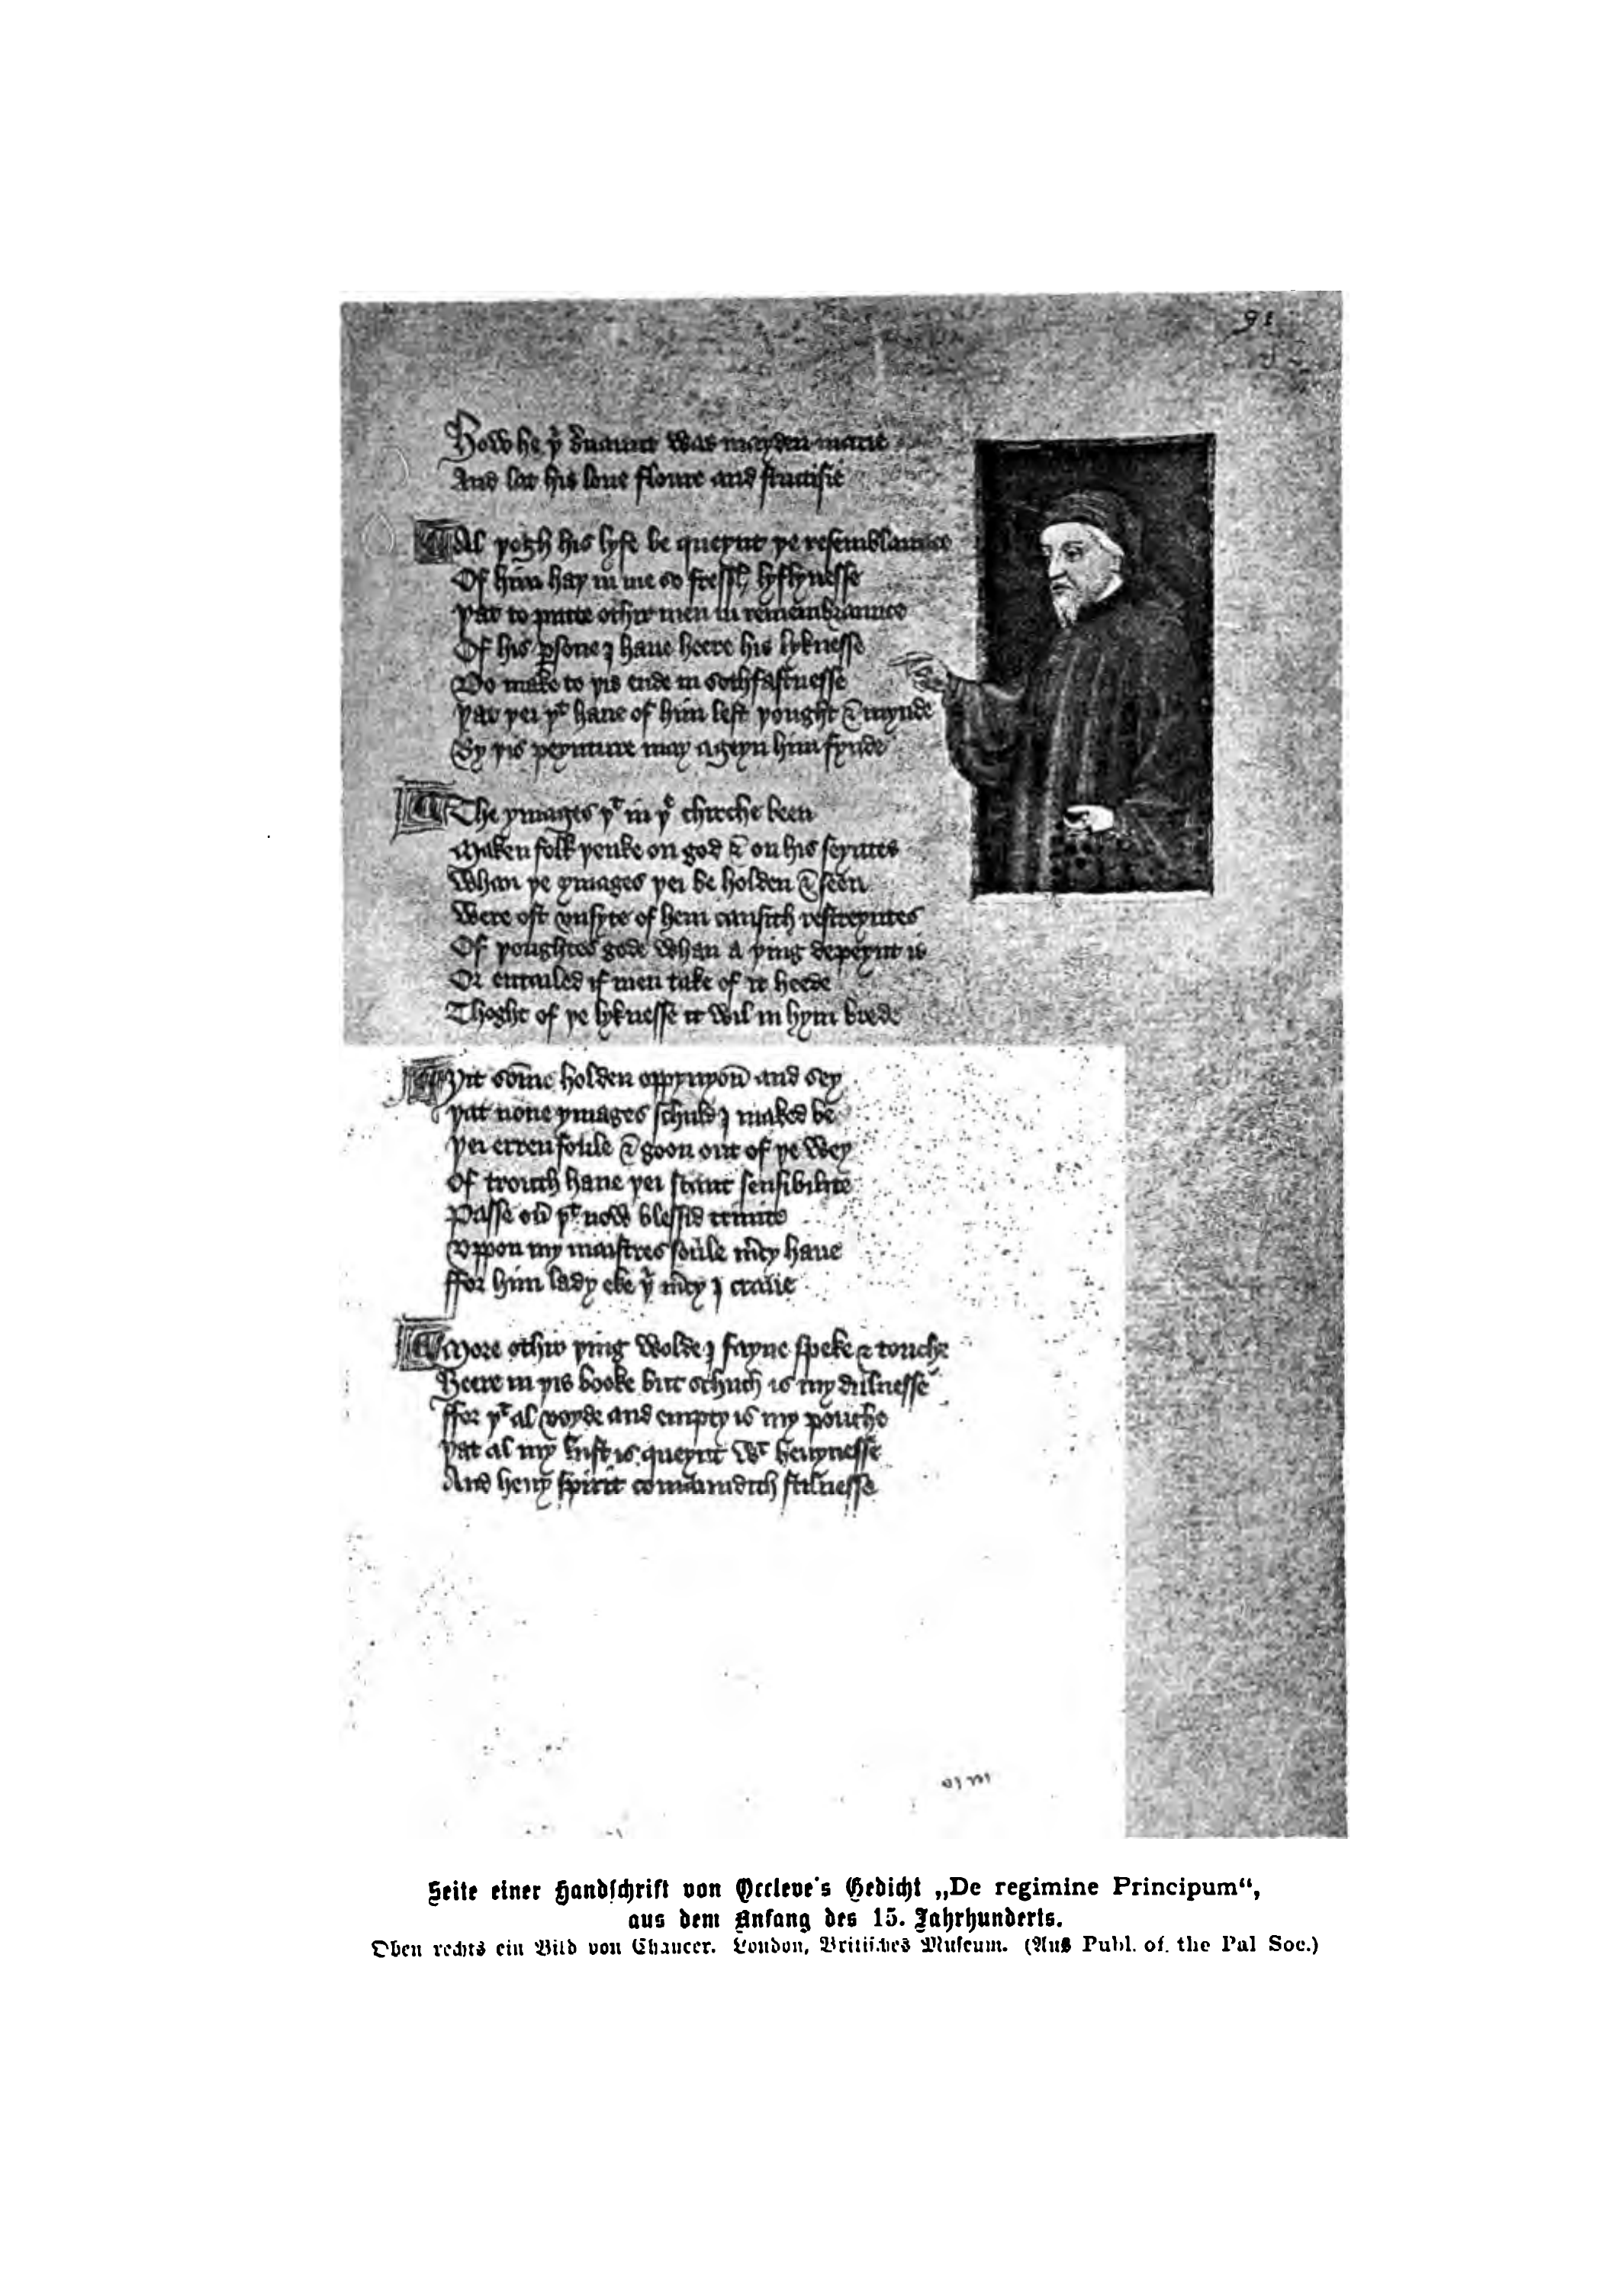 91
How he þͬ ẜuaunt was mayden marie
And lat his loue floure and fructifie
Al þogh his lyfe be queynt þe resemblaunce
Of him haþ in me so fressh lyflynesse
Þat to putte othir men in remembraunce
Of his ꝑsone I haue heere his lyknesse
Do make to þis ende in sothfastnesse
Þat þei þͭ haue of him left þought & mynde
By þis peynture may ageyn him fynde
The ymages þͭ in þͤ chirche been
Maken folk þenke on god & on his seyntes
Whan þe ymages þei be holden & seen
Were oft vnsyte of hem causith restreyntes
Of þoughtes gode whan a þing depeynt is
Or entailed if men take of it heede
Thoght of þe lyknesse it wil in hym brede
Yit some holden oppynyoū and sey
Þat none ymages schuld I maked be
Þei erren foule & goon out of þe wey
Of trouth haue þei scant sensibilite
Passe ou̅ þͭ now blessid trinite
Vppon my maistres soule m̅cy haue
ffor him lady eke þͬ m̅cy I craue
More othir þing wolde I fayne speke & touche
Heere in þis booke but schuch is my dulnesse
ffor þͭ al voyde and empty is my pouche
Þat al my lust is queynt wͭ heuynesse
And heuy spirit comaundith stilnesse
Seite einer Handschrift von Occleve's Gedicht „De regimine Principum“,
aus dem Anfang des 15. Jahrhunderts.
Oben rechts ein Bild von Chaucer. London, Britisches Museum. (Aus Publ. of. the Pal Soc.)